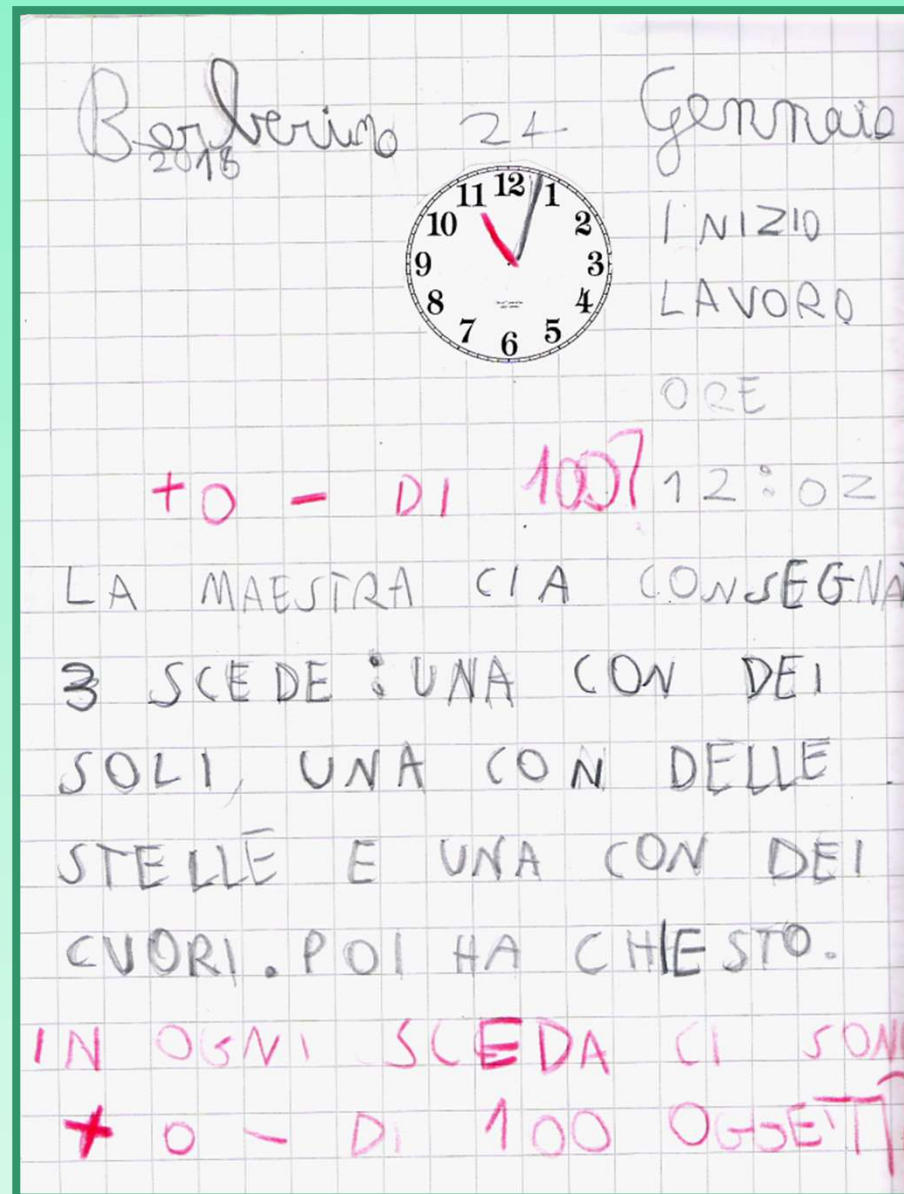 Barberino 24 Gennaio
2018
11 12 1
10 2
9 3
8 4
7 6 5
INIZIO
LAVORO
ORE
+ O - DI 100? 12:02
LA MAESTRA CIA CONSEGNA
3 SCEDE: UNA CON DEI
SOLI, UNA CON DELLE
STELLE E UNA CON DEI
CUORI. POI HA CHIESTO.
IN OGNI SCEDA CI SONO
+ O - DI 100 OGGETTI